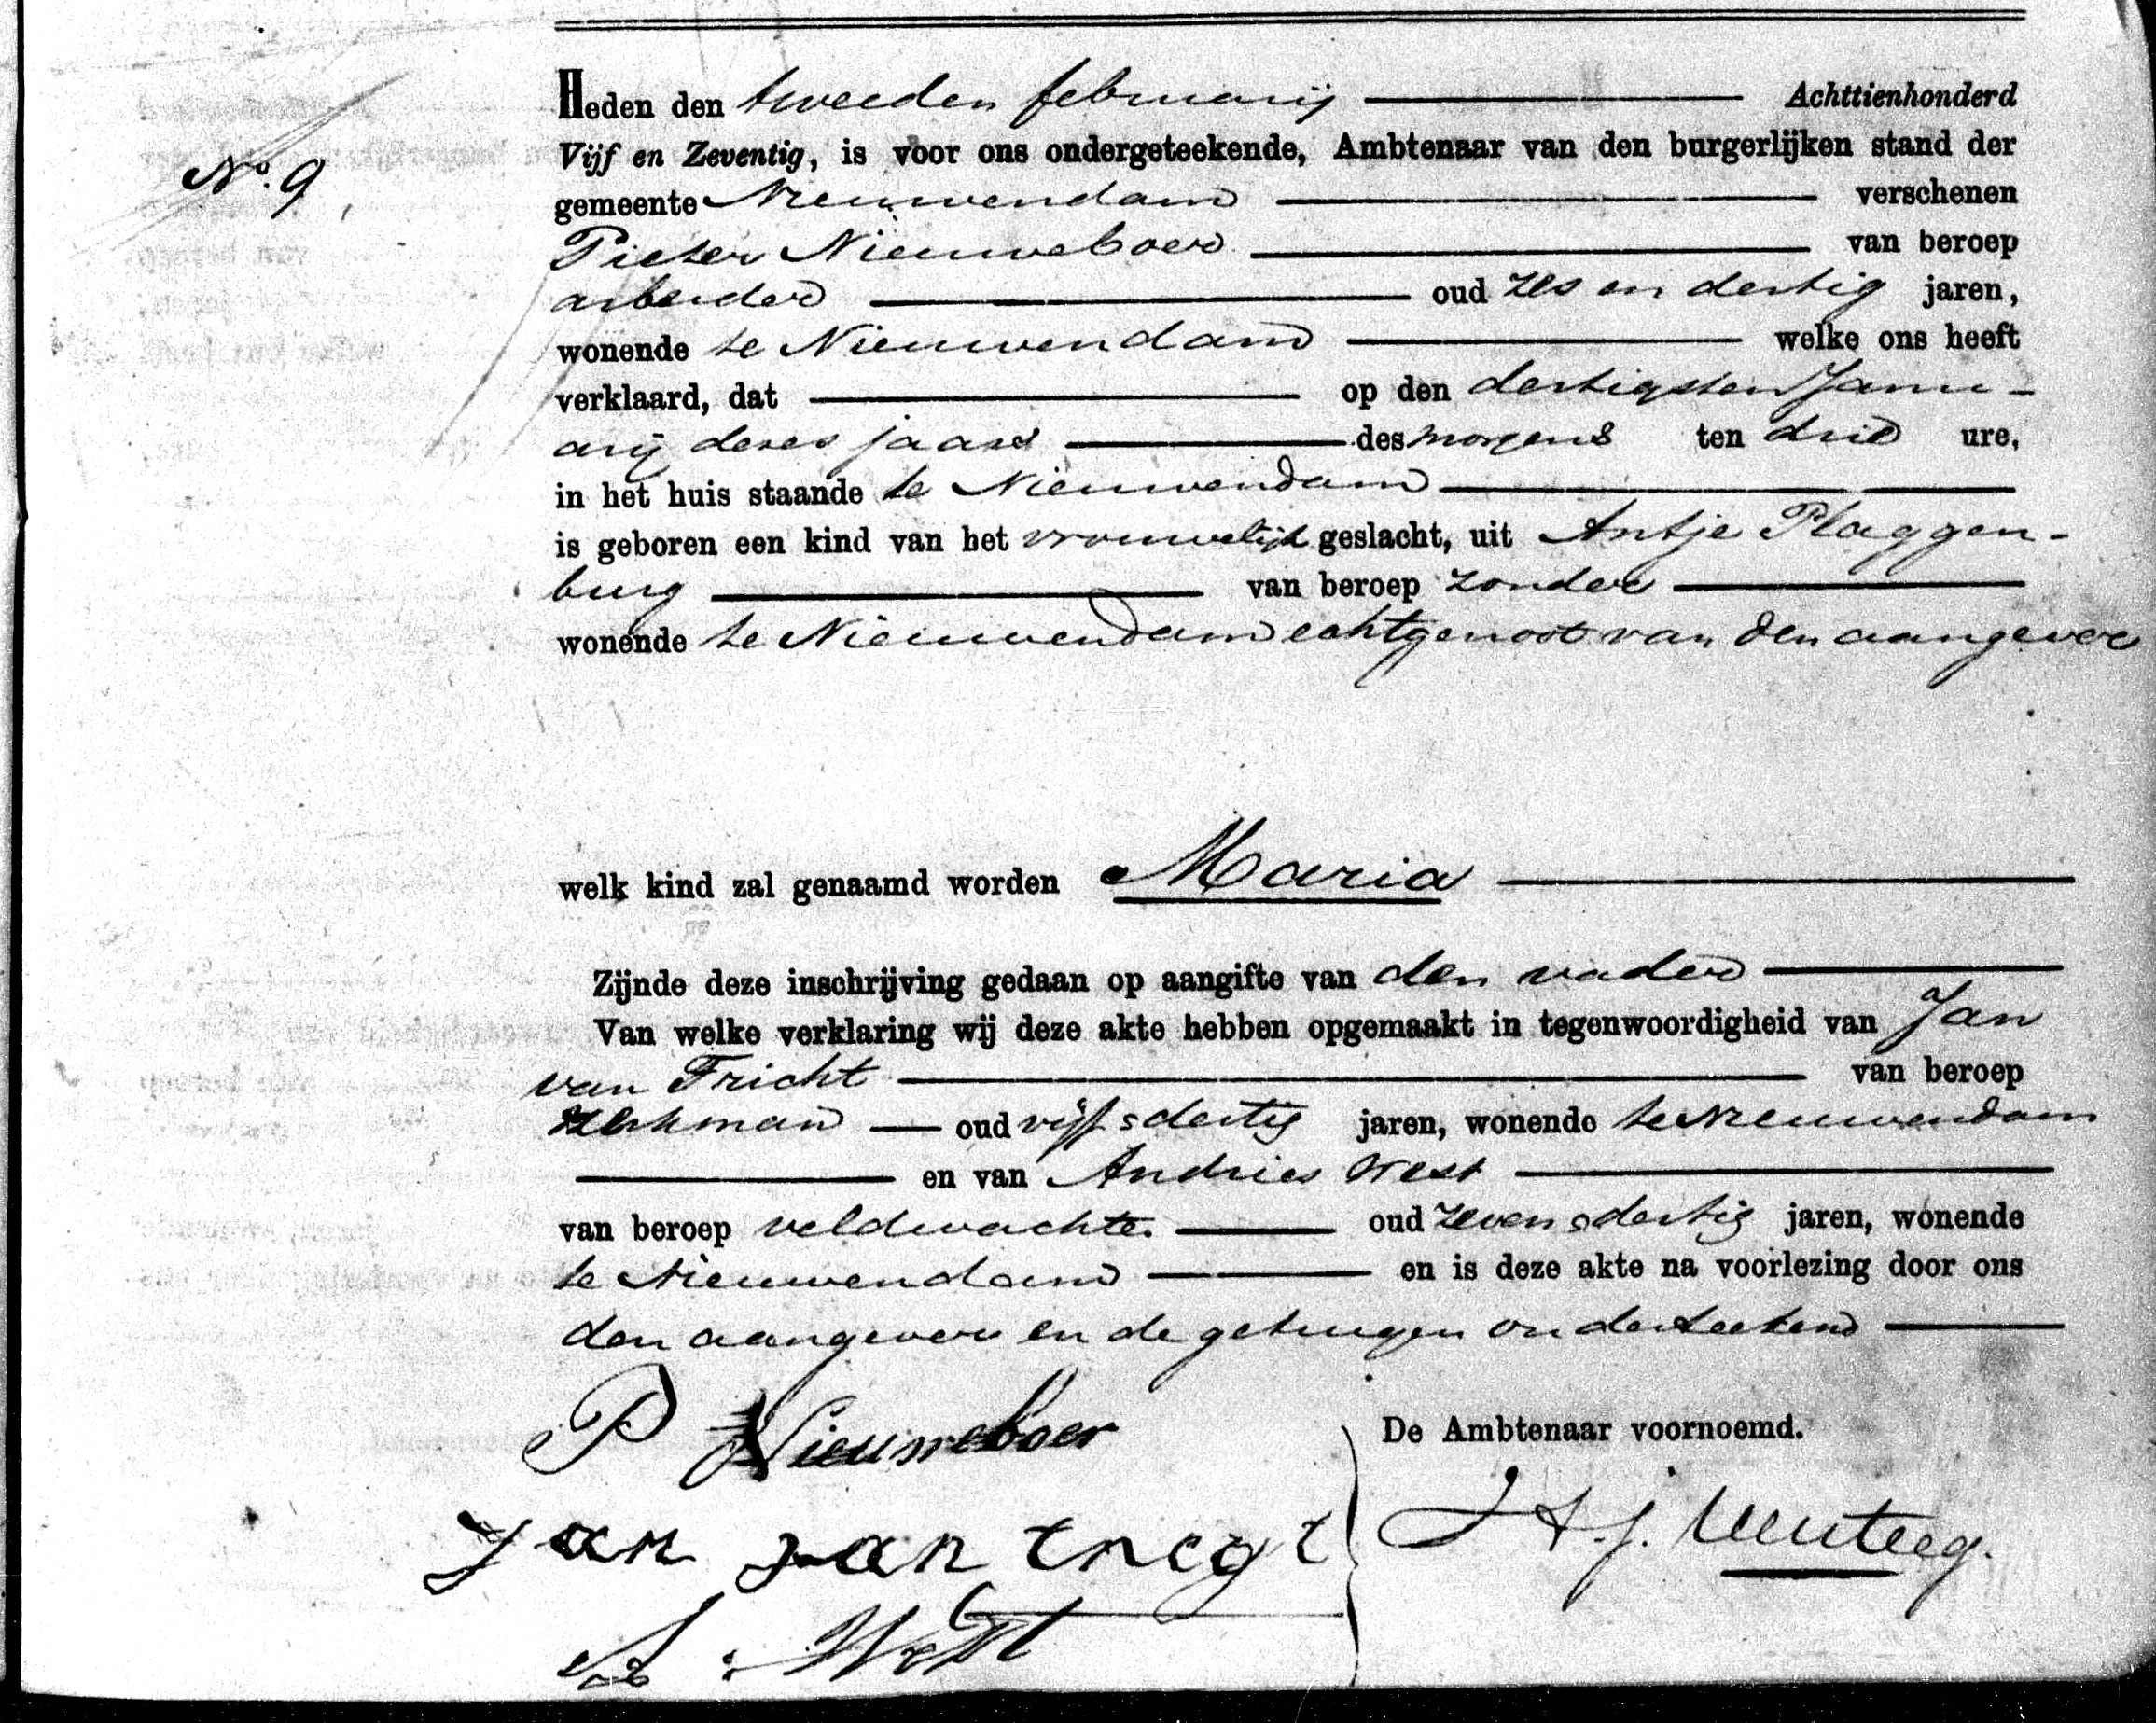 Heden den tweeden februarij Achttienhonderd
Vijf en Zeventig, is voor ons ondergeteekende, Ambtenaar van den burgerlijken stand der
No. 9
gemeente Nieuwendam verschenen
Pieter Nieuweboer van beroep
arbeider oud zes en dertig jaren,
wonende te Nieuwendam welke ons heeft
verklaard, dat op den dertigsten Janu-
arij dezes jaars des morgens ten drie ure,
in het huis staande te Nieuwendam
is geboren een kind van het vrouwelijk geslacht, uit Antje Plaggen-
burg van beroep zonder
wonende te Nieuwendam echtgenoot van den aangever
welk kind zal genaamd worden Maria
Zijnde deze inschrijving gedaan op aangifte van den vader
Van welke verklaring wij deze akte hebben opgemaakt in tegenwoordigheid van Jan
van Tricht van beroep
oud vijf & dertig jaren, wonende te Nieuwendam
en van Andries West
van beroep veldwachter oud zeven & dertig jaren, wonende
te Nieuwendam en is deze akte na voorlezing door ons
den aangever en de getuigen onderteekend
P Nieuweboer
De Ambtenaar voornoemd.
Jan van tricgt
A. West